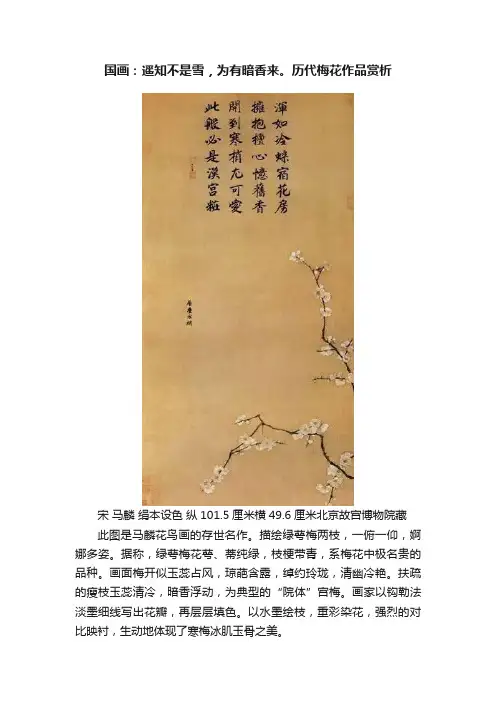 国画：遥知不是雪，为有暗香来。历代梅花作品赏析
渾如冷蝶宿花房
擁抱檀心憶舊香
開到寒梢尤可愛
此般必是漢宮粧
層疊冰綃
宋 马麟 绢本设色 纵 101.5 厘米横 49.6 厘米北京故宫博物院藏
此图是马麟花鸟画的存世名作。描绘绿萼梅两枝，一俯一仰，婀
娜多姿。据称，绿萼梅花萼、蒂纯绿，枝梗带青，系梅花中极名贵的
品种。画面梅开似玉蕊占风，琼葩含露，绰约玲珑，清幽冷艳。扶疏
的瘦枝玉蕊清冷，暗香浮动，为典型的“院体”宫梅。画家以钩勒法
淡墨细线写出花瓣，再层层填色。以水墨绘枝，重彩染花，强烈的对
比映衬，生动地体现了寒梅冰肌玉骨之美。